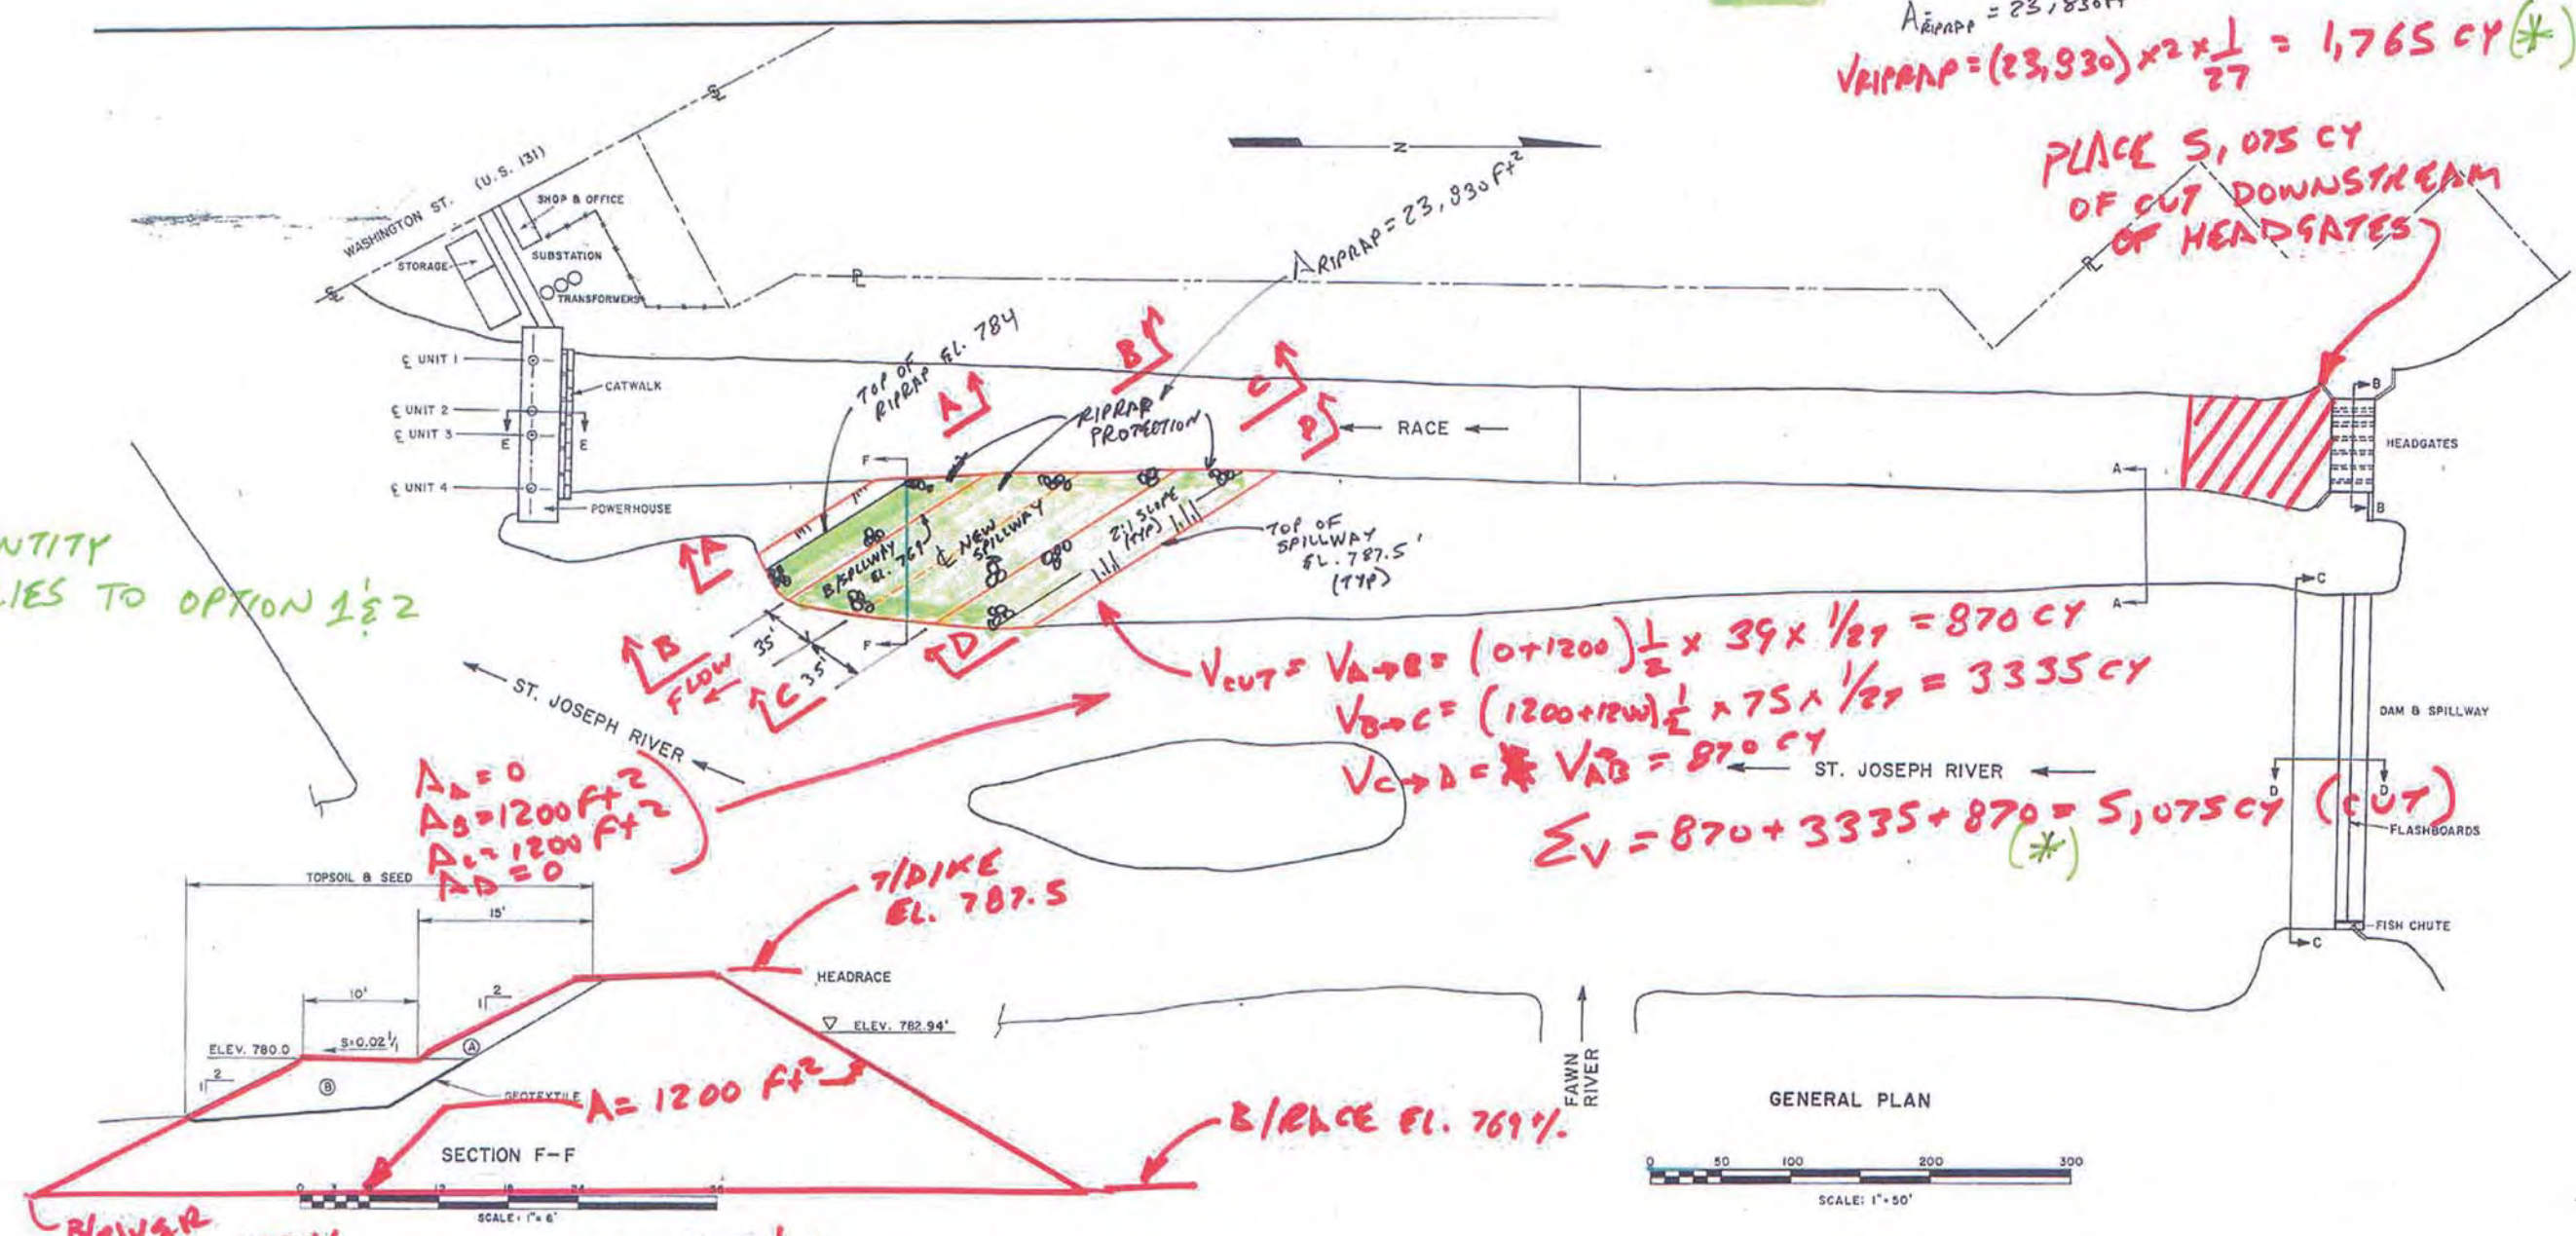 A RIPRAP = 23,830 Ft
V RIPRAP = (23,830) x 2 x 1/27 = 1,765 CY (*)
PLACE 5,075 CY
OF CUT DOWNSTREAM
OF HEADGATES
N
WASHINGTON ST. (U.S. 131)
SHOP & OFFICE
STORAGE
SUBSTATION
TRANSFORMERS
A RIPRAP = 23,830 Ft²
℄
℄
PL
PL
℄ UNIT 1
℄ UNIT 2
℄ UNIT 3
℄ UNIT 4
E
E
CATWALK
POWERHOUSE
TOP OF
RIPRAP EL. 784
A
B
C
D
RIPRAP
PROTECTION
RACE
HEADGATES
B
B
A
A
F
F
B/SPILLWAY
EL. 769
℄ NEW
SPILLWAY
2:1 SLOPE
(TYP)
TOP OF
SPILLWAY
EL. 787.5'
(TYP)
NTITY
LIES TO OPTION 1 & 2
A
B
C
D
FLOW
35'
35'
ST. JOSEPH RIVER
VCUT = VA→B = (0+1200) 1/2 x 39 x 1/27 = 870 CY
VB→C = (1200+1200) 1/2 x 75 x 1/27 = 3335 CY
VC→D = VAB = 870 CY
ΣV = 870 + 3335 + 870 = 5,075 CY (CUT)
(*)
ST. JOSEPH RIVER
C
C
D
D
DAM & SPILLWAY
FLASHBOARDS
FISH CHUTE
AA = 0
AB = 1200 Ft²
AC = 1200 Ft²
AD = 0
TOPSOIL & SEED
15'
10'
T/DIKE
EL. 787.5
HEADRACE
ELEV. 782.94'
ELEV. 780.0
S=0.02 1/1
1 2
1 2
A
B
GEOTEXTILE
A = 1200 Ft²
B/RACE EL. 769 +/-
SECTION F-F
SCALE: 1"=6'
B/RIVER
FAWN
RIVER
GENERAL PLAN
0 50 100 200 300
SCALE: 1"=50'